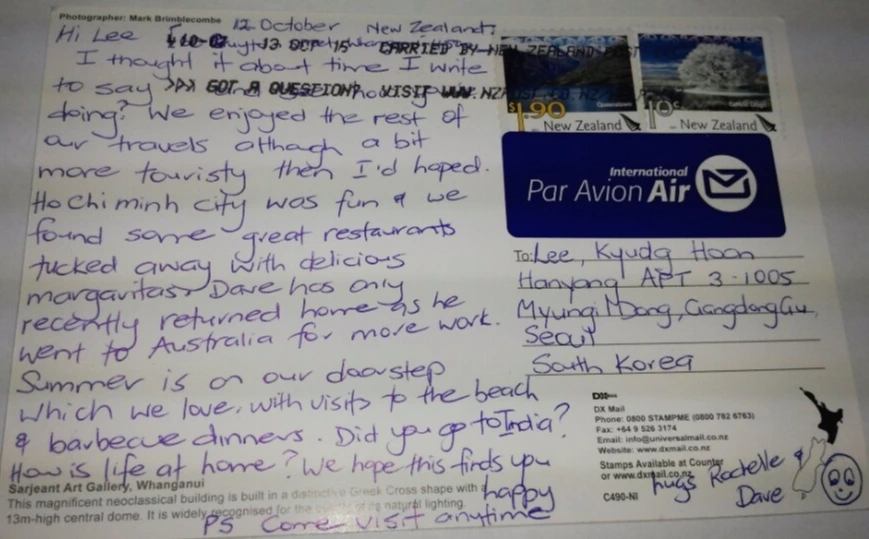 Photographer: Mark Brimblecombe
12 October New Zealand,
Hi Lee
13 OCT '15 CARRIED BY NEW ZEALAND POST
I thought it about time I write
to say
>>> GOT A QUESTION? VISIT WWW.NZPOST.CO.NZ
doing? We enjoyed the rest of
our travels although a bit
more touristy then I'd hoped.
Ho Chi minh city was fun & we
found some great restaurants
tucked away with delicious
margaritas. Dave has only
recently returned home as he
went to Australia for more work.
Summer is on our doorstep
which we love, with visits to the beach
& barbecue dinners. Did you go to India?
How is life at home? We hope this finds you
happy
PS Come visit anytime
hugs Rachelle &
Dave
Sarjeant Art Gallery, Whanganui
This magnificent neoclassical building is built in a distinctive Greek Cross shape with
13m-high central dome. It is widely recognised for the of its natural lighting.
$1.90
New Zealand
10c
New Zealand
International
Par Avion Air
To: Lee, Kyudg Hoon
Hanyang APT 3-1005
Myungil Dong, Gangdong Gu,
Seoul
South Korea
DX Mail
Phone: 0800 STAMPME (0800 782 6763)
Fax: +64 9 526 3174
Email: info@universalmail.co.nz
Website: www.dxmail.co.nz
Stamps Available at Counter
or www.dxmail.co.nz
C490-NI